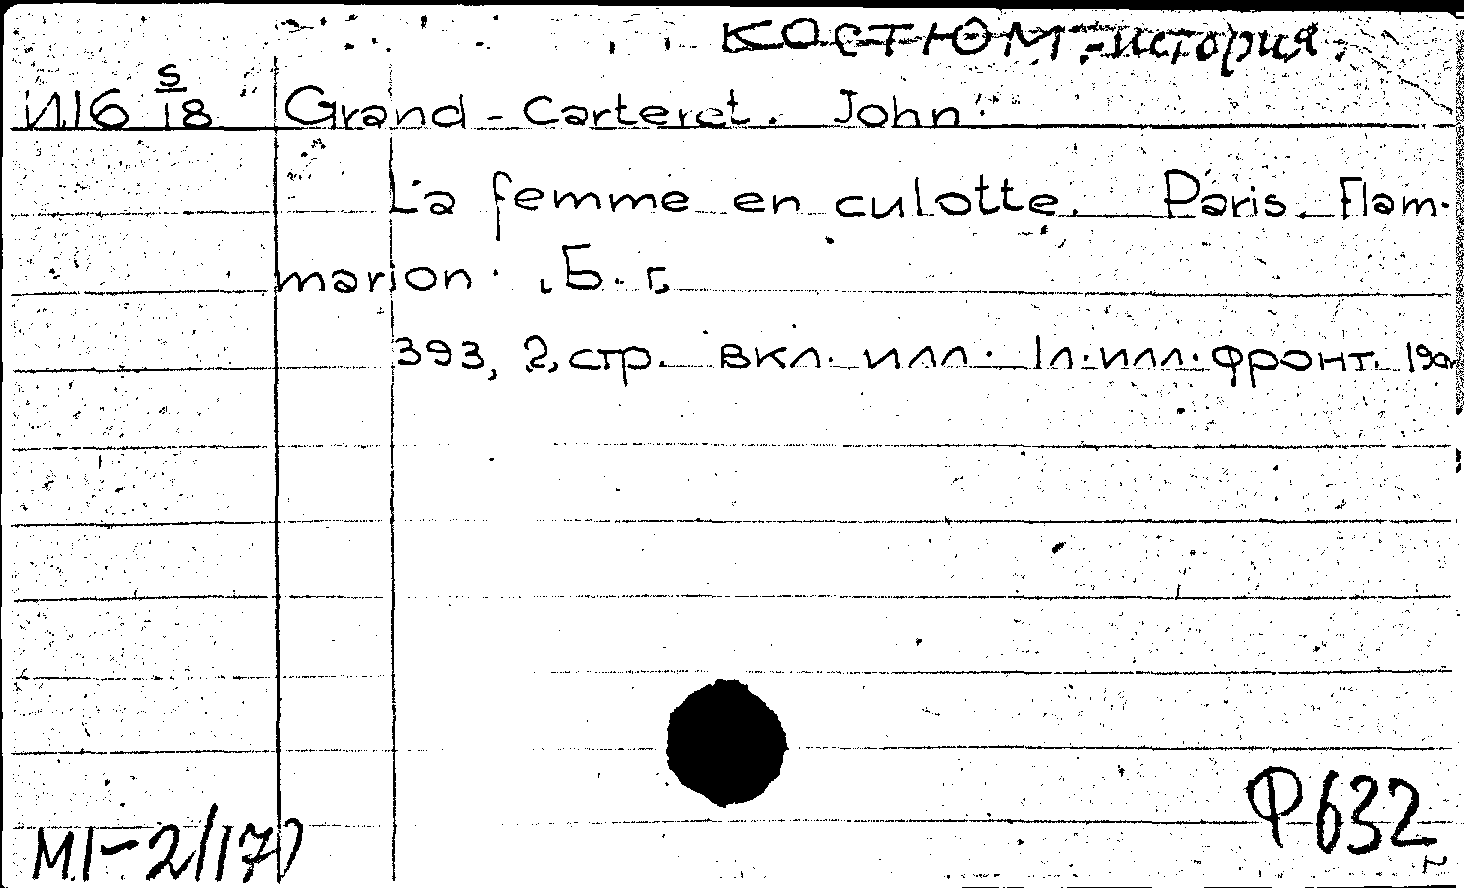 КОСТЮМ - история.
И.16 S/18 Grand - Carteret. John.
La femme en culotte. Paris. Flam-
marion. Б. г.
393, 2, стр. вкл. илл. 1 л. илл. фронт.
М1-2/170
Ф632